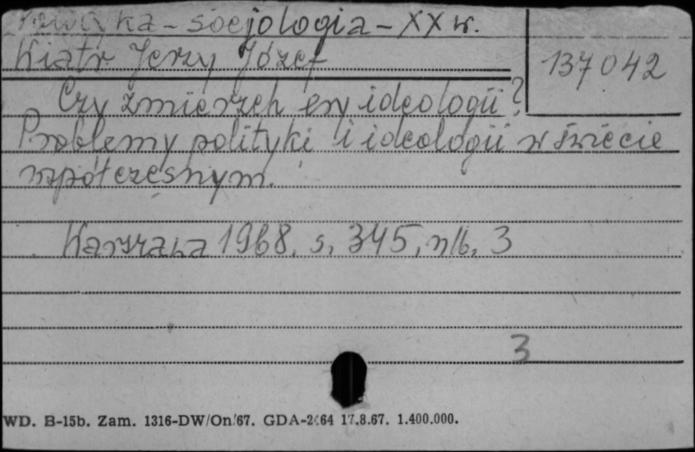 ka - socjologia - XX w.
Wiatr Jerzy Józef
137042
Czy zmierzch ery ideologii?
Problemy polityki i ideologii w świecie
współczesnym.
Warszawa 1968, s, 345, nlb, 3
3
WD. B-15b. Zam. 1316-DW/On/67. GDA-2 64 17.8.67. 1.400.000.